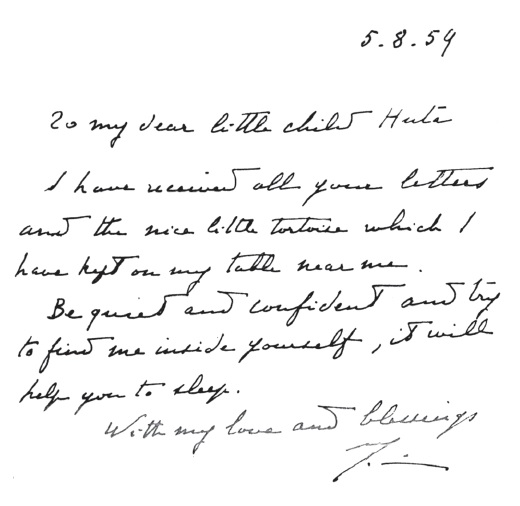 5.8.59
To my dear little child Huta
I have received all your letters
and the nice little tortoise which I
have kept on my table near me.
Be quiet and confident and try
to find me inside yourself, it will
help you to sleep.
With my love and blessings